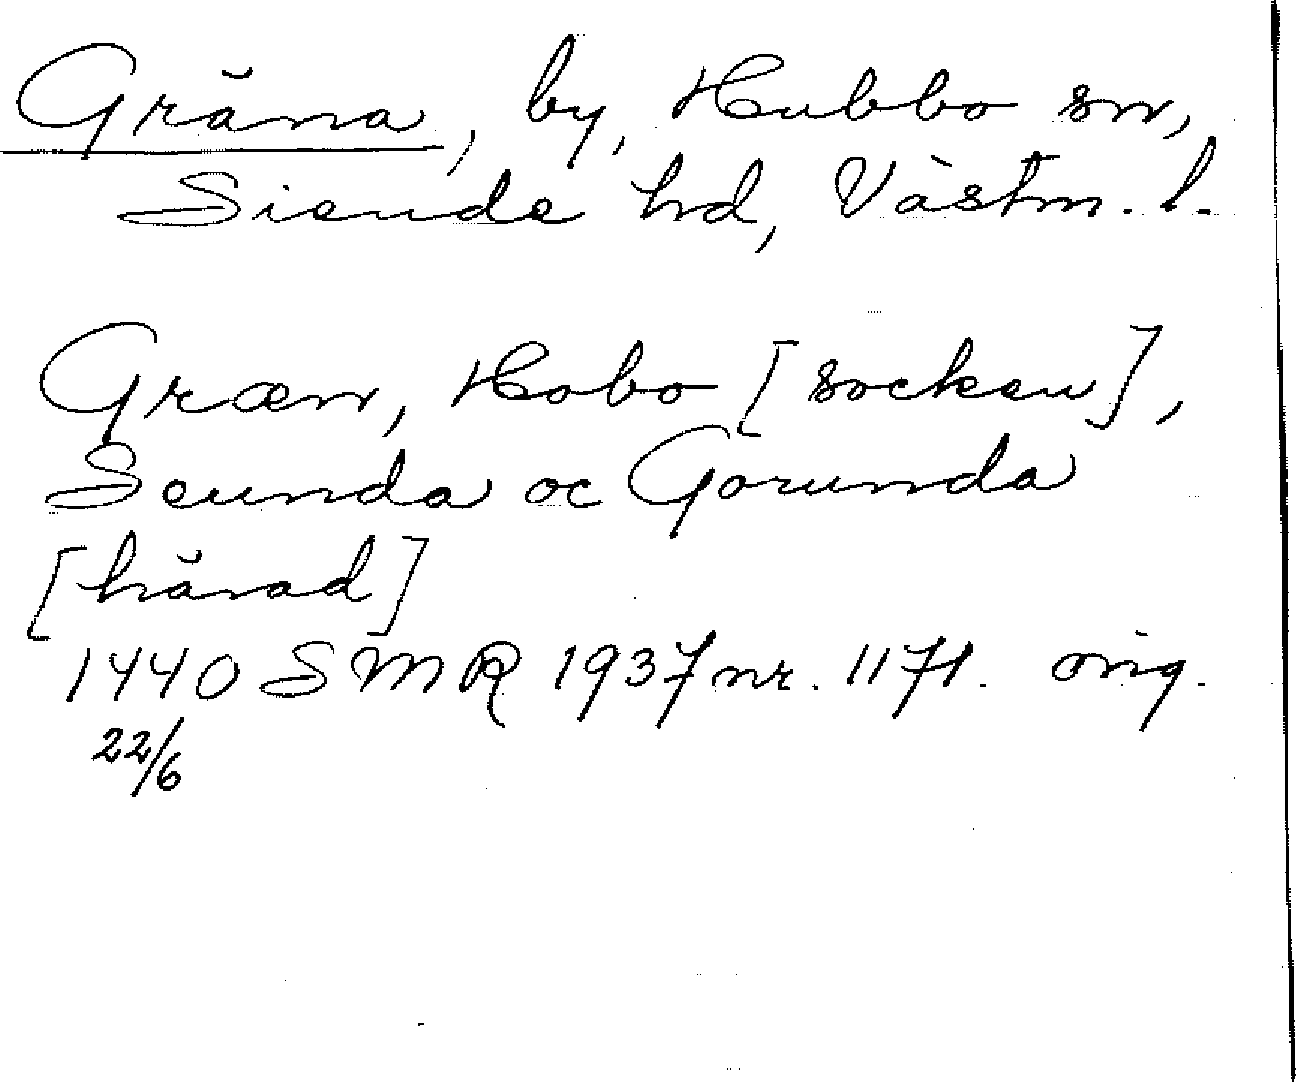 Gräna, by, Hubbo sn,
Siende hd, Västm. l.
Græn, Hobo [socken],
Seunda oc Gorunda
[härad]
1440 SMR 1937 nr. 1171. orig.
22/6